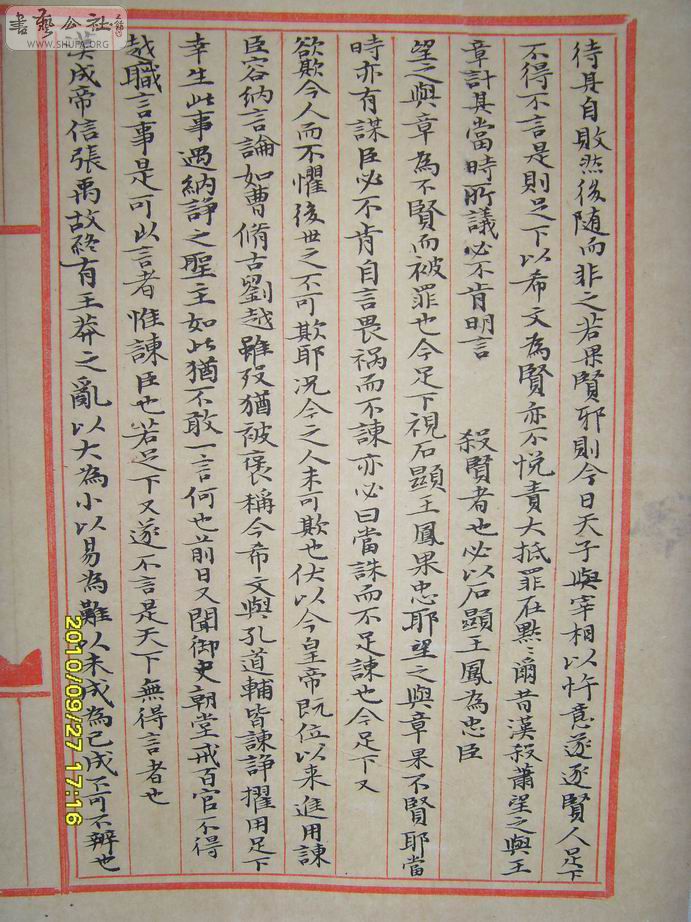 書藝公社
WWW.SHUPA.ORG
待其自敗然後隨而非之若果賢邪則今日天子與宰相以忤意逐賢人足下
不得不言是則足下以希文為賢亦不悅責大抵罪在默默爾昔漢殺蕭望之與王
章計其當時所議必不肯明言 殺賢者也必以石顯王鳳為忠臣
望之與章為不賢而被罪也今足下視石顯王鳳果忠耶望之與章果不賢耶當
時亦有謀臣必不肯自言畏禍而不諫亦必曰當誅而不足諫也今足下又
欲欺今人而不懼後世之不可欺耶況今之人未可欺也伏以今皇帝既位以來進用諫
臣容納言論如曹脩古劉越雖歿猶被褒稱今希文與孔道輔皆諫諍擢用足下
幸生此事遇納諍之聖主如此猶不敢一言何也前日又聞御史朝堂戒百官不得
越職言事是可以言者惟諫臣也若足下又遂不言是天下無得言者也
漢成帝信張禹故終有王莽之亂以大為小以易為難以未成為已成不可不辨也
2010/09/27 17:16